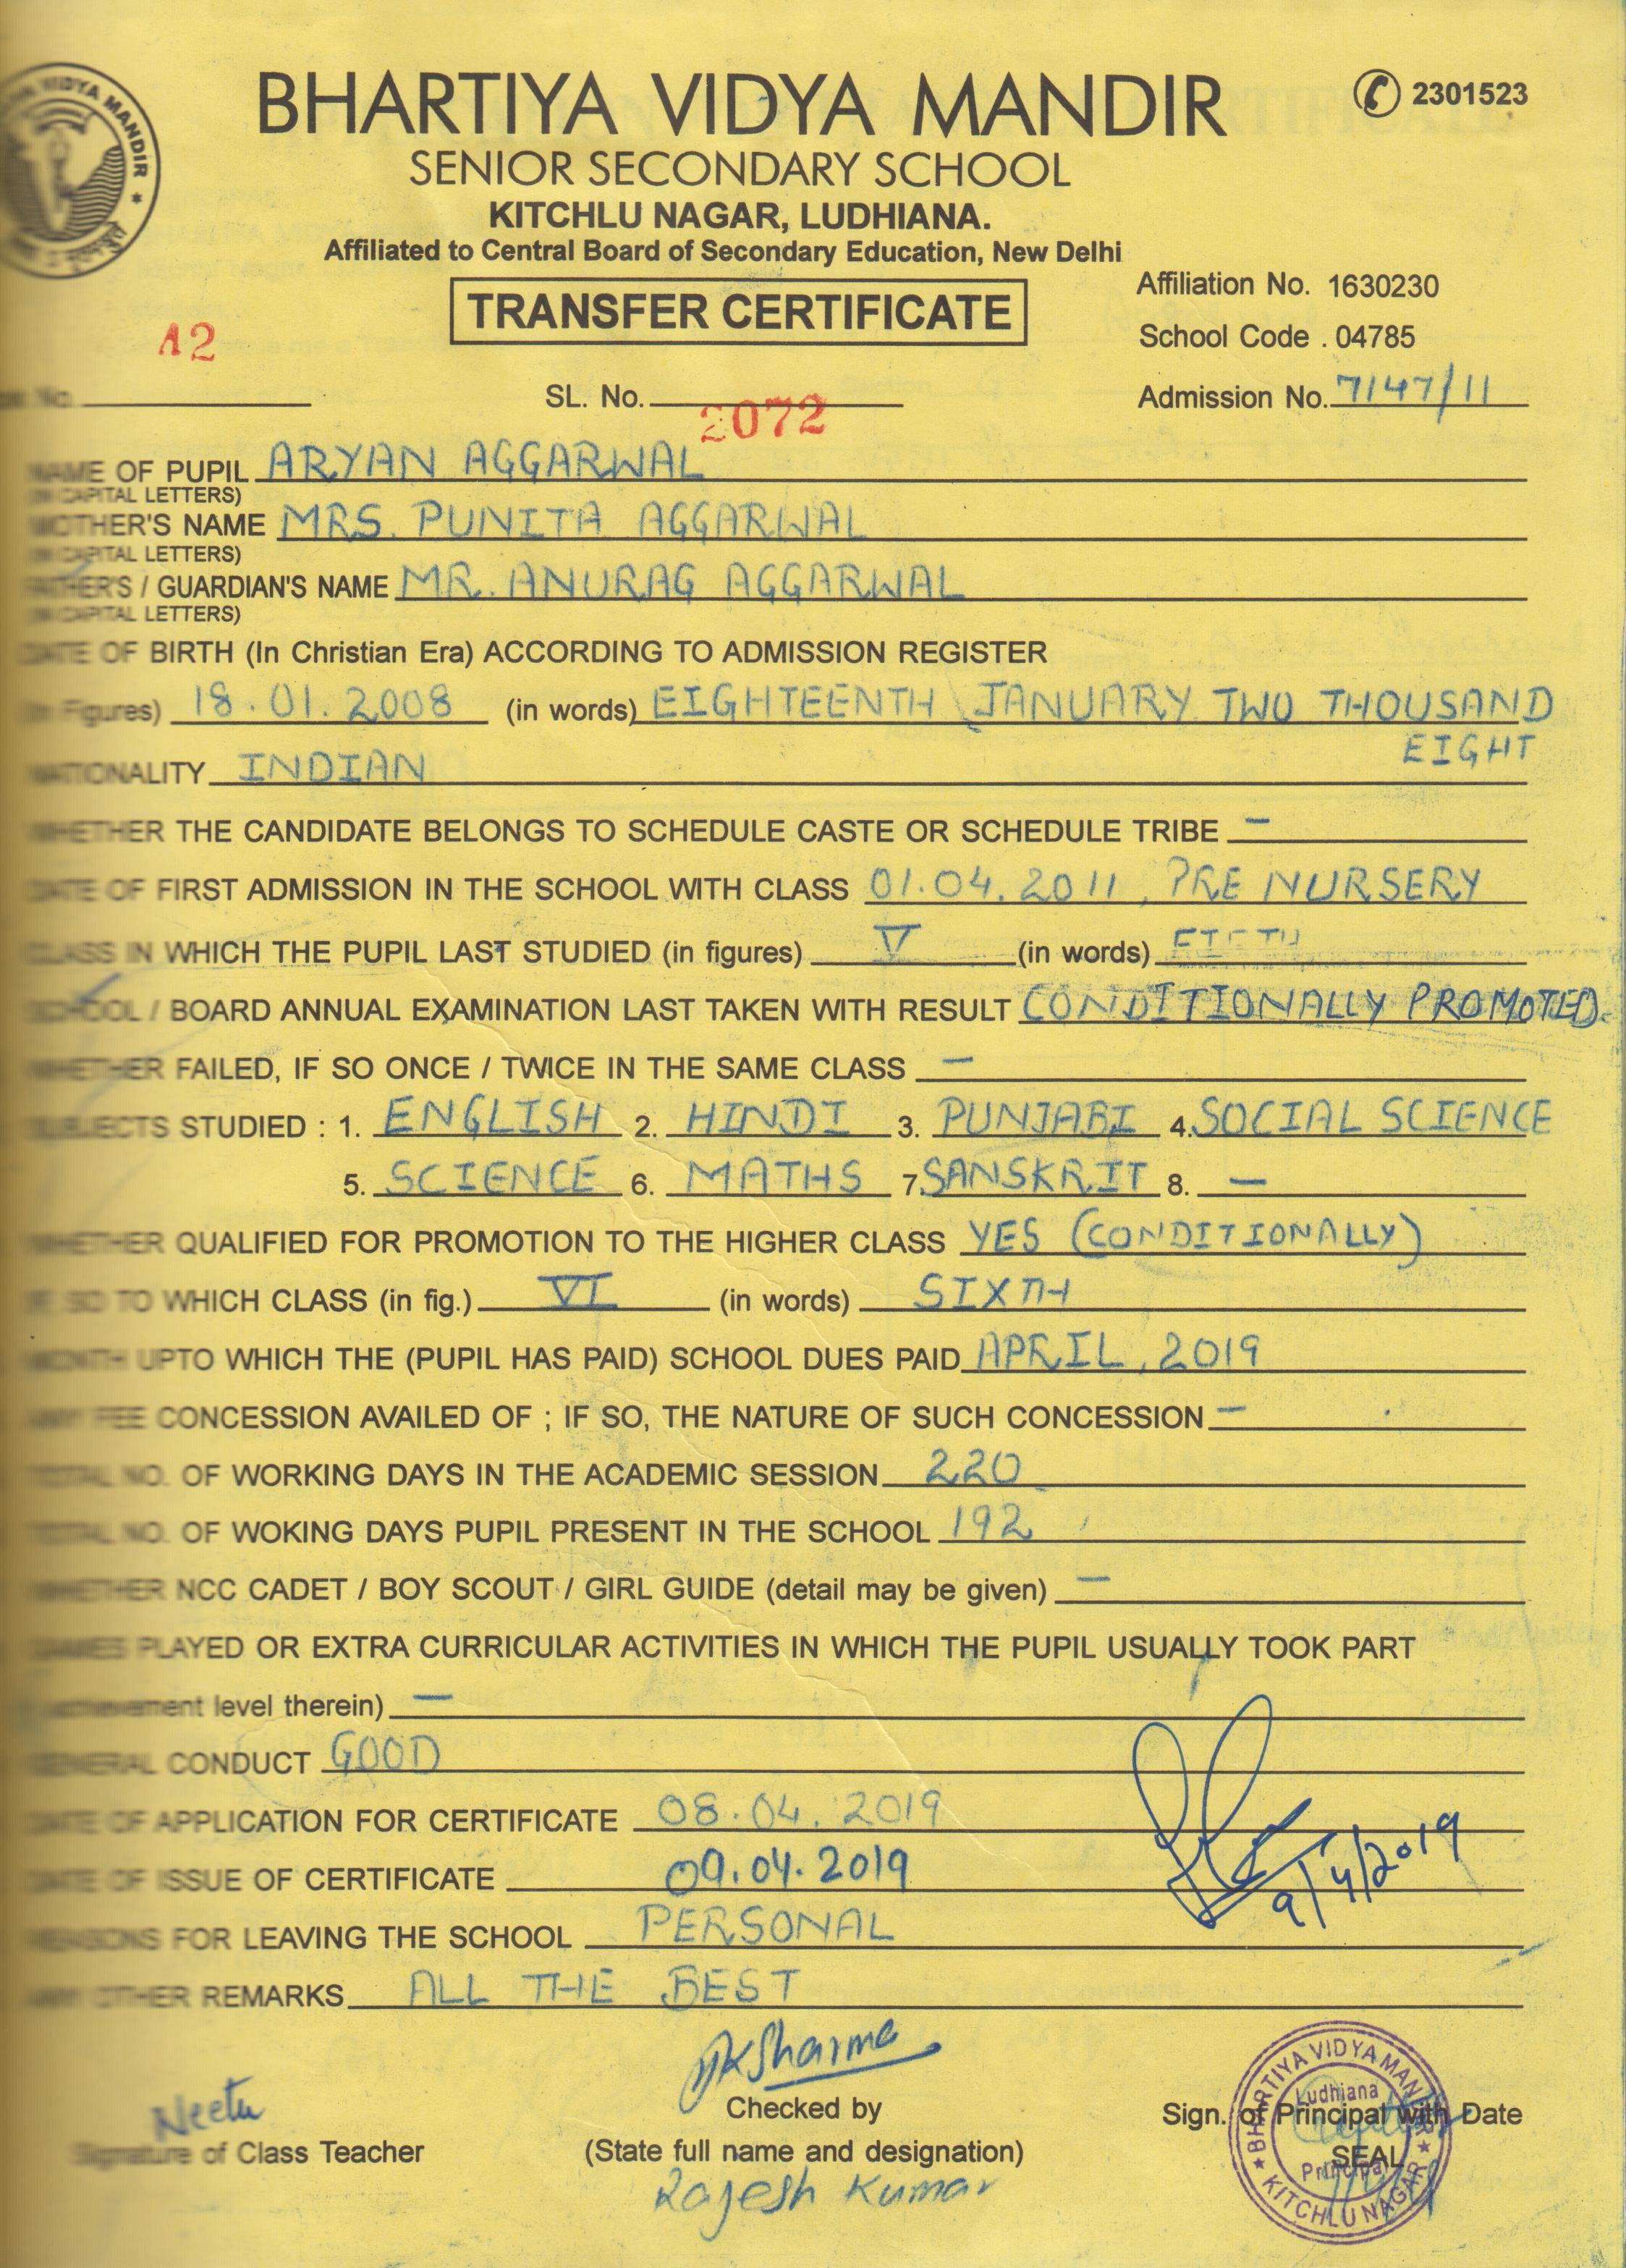 VIDYA MANDIR
BHARTIYA VIDYA MANDIR
2301523
SENIOR SECONDARY SCHOOL
KITCHLU NAGAR, LUDHIANA.
Affiliated to Central Board of Secondary Education, New Delhi
Affiliation No. 1630230
TRANSFER CERTIFICATE
School Code . 04785
A2
No. SL. No. 2072 Admission No. 7147/11
NAME OF PUPIL ARYAN AGGARWAL
(IN CAPITAL LETTERS)
MOTHER'S NAME MRS. PUNITA AGGARWAL
(IN CAPITAL LETTERS)
FATHER'S / GUARDIAN'S NAME MR. ANURAG AGGARWAL
(IN CAPITAL LETTERS)
DATE OF BIRTH (In Christian Era) ACCORDING TO ADMISSION REGISTER
(In Figures) 18.01.2008 (in words) EIGHTEENTH JANUARY TWO THOUSAND
EIGHT
NATIONALITY INDIAN
WHETHER THE CANDIDATE BELONGS TO SCHEDULE CASTE OR SCHEDULE TRIBE –
DATE OF FIRST ADMISSION IN THE SCHOOL WITH CLASS 01.04.2011, PRE NURSERY
CLASS IN WHICH THE PUPIL LAST STUDIED (in figures) V (in words) FIFTH
SCHOOL / BOARD ANNUAL EXAMINATION LAST TAKEN WITH RESULT CONDITIONALLY PROMOTED.
WHETHER FAILED, IF SO ONCE / TWICE IN THE SAME CLASS –
SUBJECTS STUDIED : 1. ENGLISH 2. HINDI 3. PUNJABI 4. SOCIAL SCIENCE
5. SCIENCE 6. MATHS 7. SANSKRIT 8. –
WHETHER QUALIFIED FOR PROMOTION TO THE HIGHER CLASS YES (CONDITIONALLY)
IF SO TO WHICH CLASS (in fig.) VI (in words) SIXTH
MONTH UPTO WHICH THE (PUPIL HAS PAID) SCHOOL DUES PAID APRIL, 2019
ANY FEE CONCESSION AVAILED OF ; IF SO, THE NATURE OF SUCH CONCESSION –
TOTAL NO. OF WORKING DAYS IN THE ACADEMIC SESSION 220
TOTAL NO. OF WOKING DAYS PUPIL PRESENT IN THE SCHOOL 192
WHETHER NCC CADET / BOY SCOUT / GIRL GUIDE (detail may be given) –
GAMES PLAYED OR EXTRA CURRICULAR ACTIVITIES IN WHICH THE PUPIL USUALLY TOOK PART
achievement level therein) –
GENERAL CONDUCT GOOD
DATE OF APPLICATION FOR CERTIFICATE 08.04.2019
9/4/2019
DATE OF ISSUE OF CERTIFICATE 09.04.2019
REASONS FOR LEAVING THE SCHOOL PERSONAL
ANY OTHER REMARKS ALL THE BEST
Sharma
Neetu
Checked by
Sign. of Principal with Date
Signature of Class Teacher
(State full name and designation)
SEAL
Rajesh Kumar
BHARTIYA VIDYA MANDIR
KITCHLU NAGAR
Ludhiana
Principal